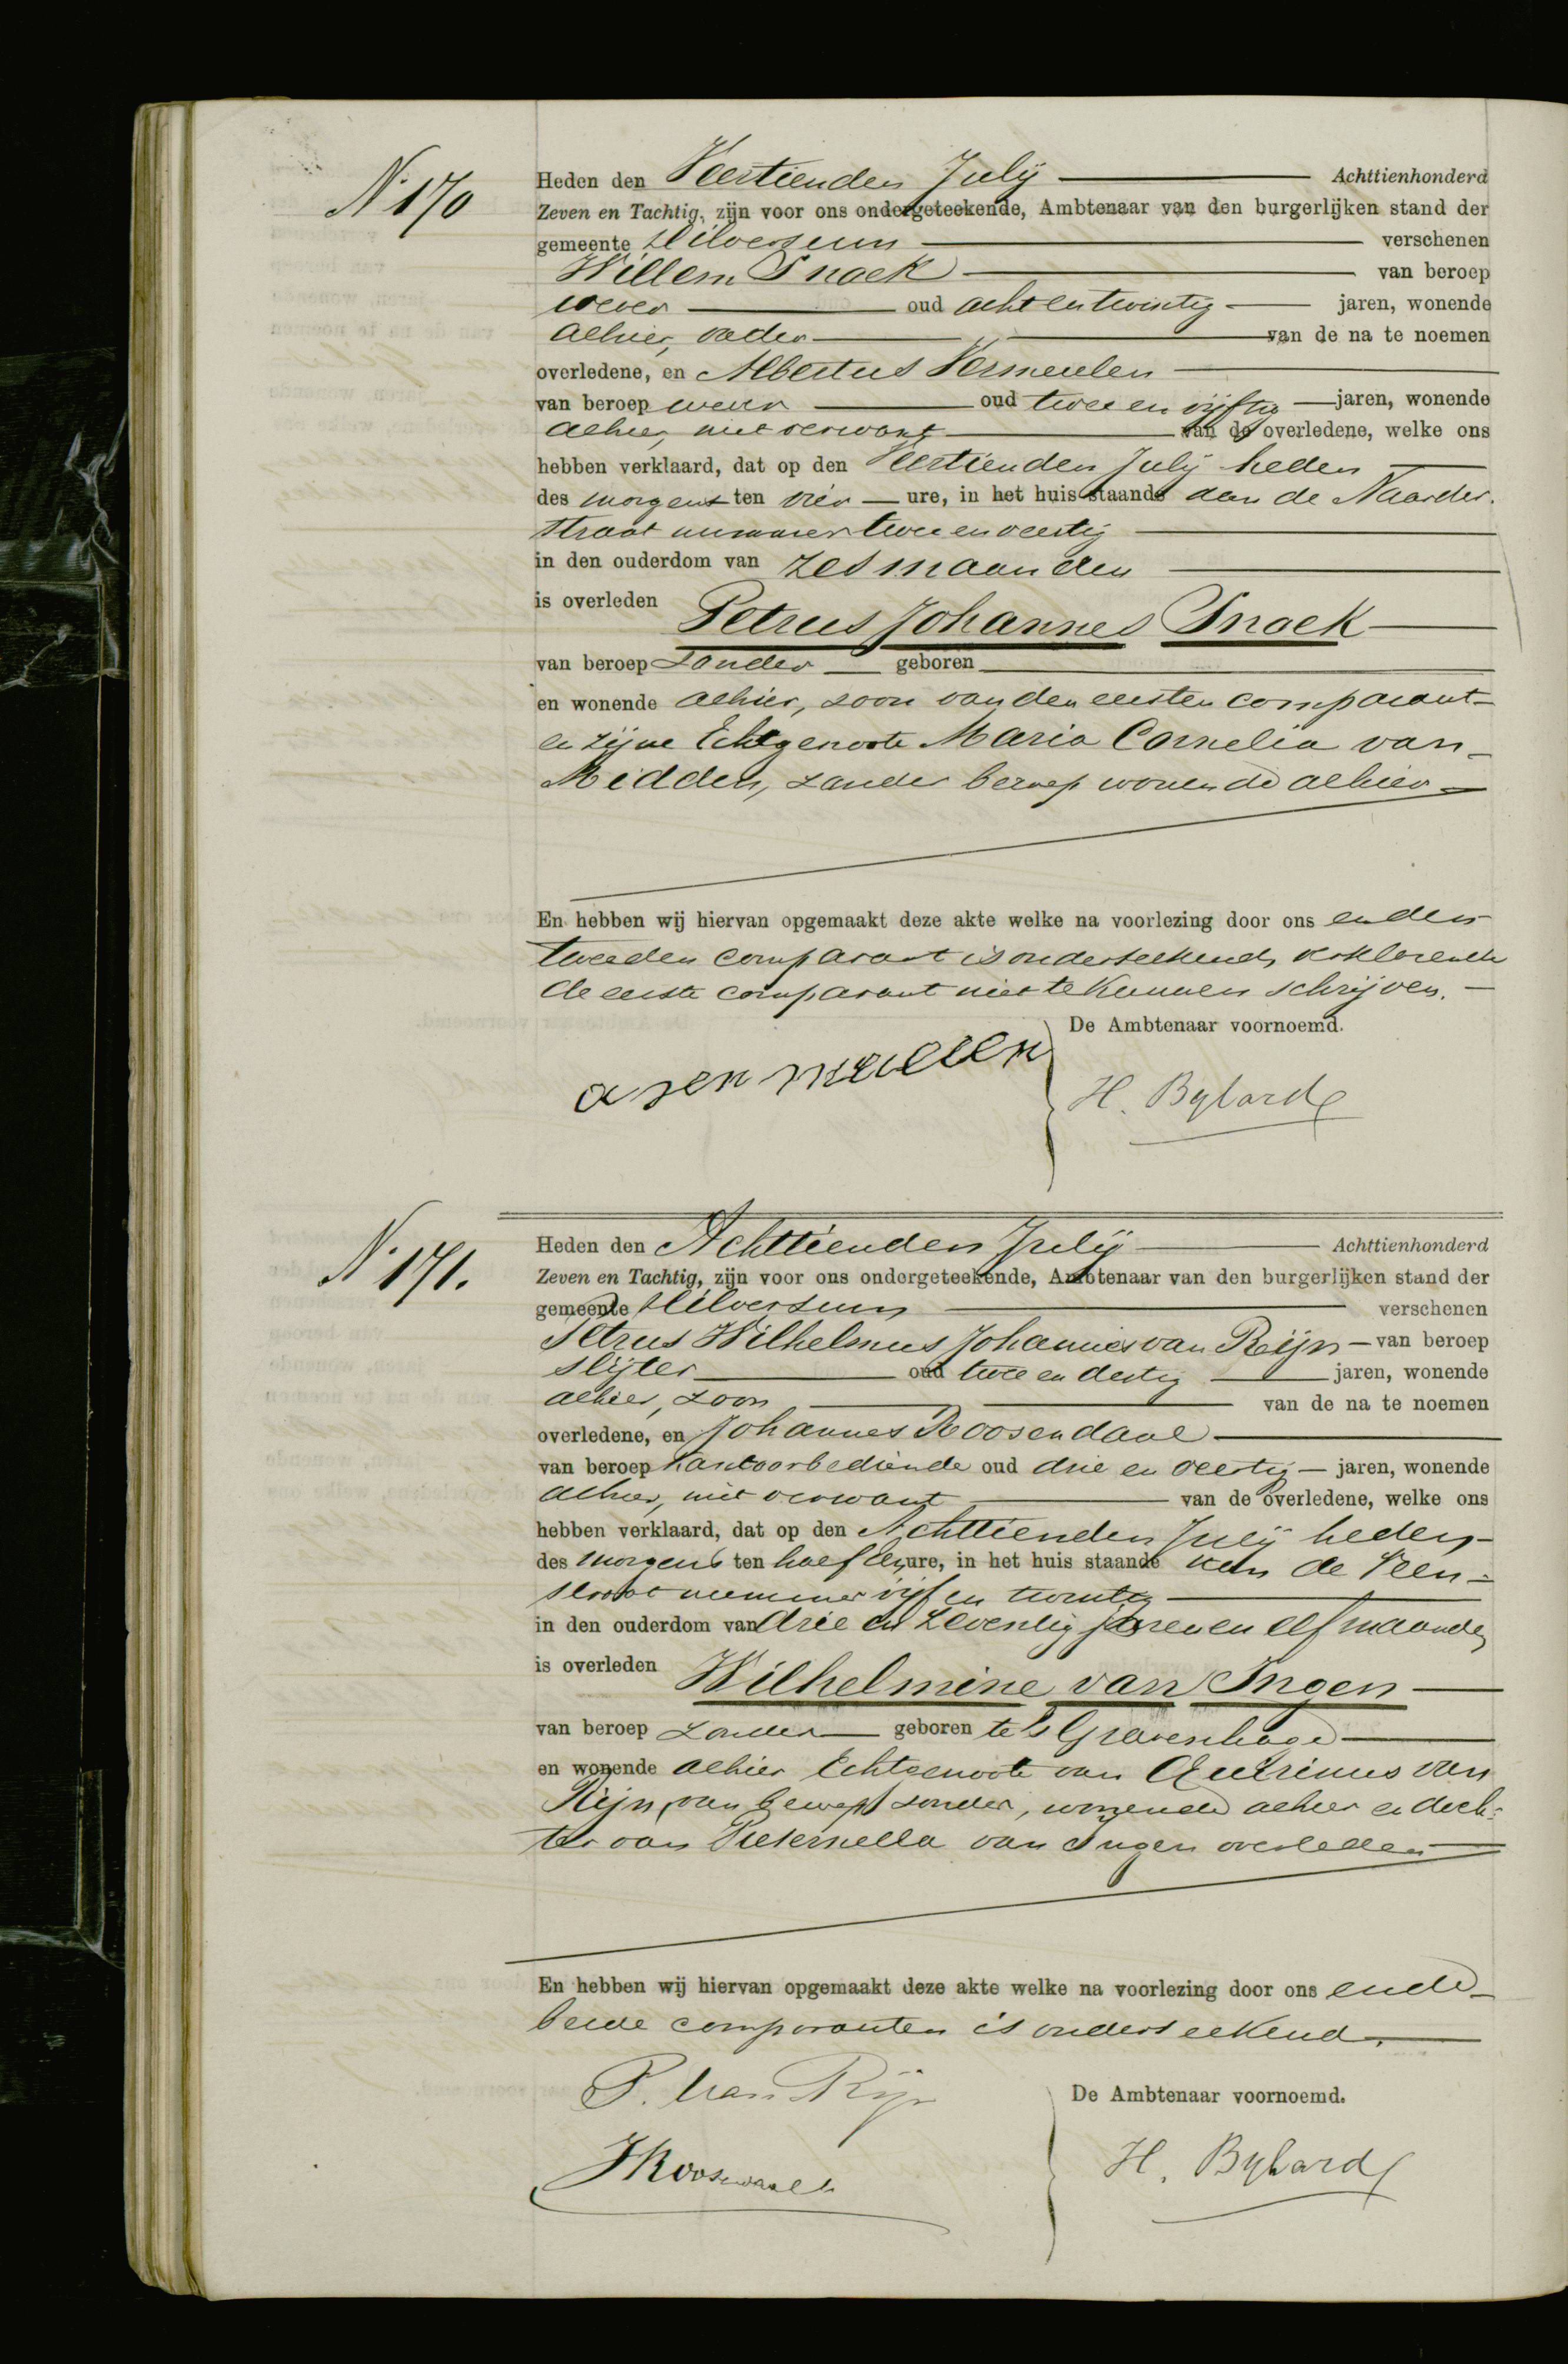 N. 170
Heden den Veertienden July Achttienhonderd
Zeven en Tachtig, zijn voor ons ondergeteekende, Ambtenaar van den burgerlijken stand der
gemeente Hilversum verschenen
Willem Snoek van beroep
wever oud acht en twintig jaren, wonende
alhier, vader van de na te noemen
overledene, en Albertus Vermeulen
van beroep wever oud twee en vijftig jaren, wonende
alhier, niet verwant van de overledene, welke ons
hebben verklaard, dat op den Veertienden July heden
des morgens ten vier ure, in het huis staande aan de Naarder-
straat nummer twee en veertig
in den ouderdom van zes maanden
is overleden Petrus Johannes Snoek
van beroep zonder geboren
en wonende alhier, zoon van den eersten comparant
en zijne Echtgenoote Maria Cornelia van
Midden, zonder beroep wonende alhier
En hebben wij hiervan opgemaakt deze akte welke na voorlezing door ons en den
tweeden comparant is onderteekend, verklarende
de eerste comparant niet te kunnen schrijven.
De Ambtenaar voornoemd.
H. Bylard
N. 171.
Heden den Achttienden July Achttienhonderd
Zeven en Tachtig, zijn voor ons ondergeteekende, Ambtenaar van den burgerlijken stand der
gemeente Hilversum verschenen
Petrus Wilhelmus Johannes van Reijn van beroep
slijter oud twee en dertig jaren, wonende
alhier, zoon van de na te noemen
overledene, en Johannes Roosendaal
van beroep kantoorbediende oud drie en veertig jaren, wonende
alhier, niet verwant van de overledene, welke ons
hebben verklaard, dat op den Achttienden July heden
des morgens ten half ure, in het huis staande aan de Veen-
straat nummer vijf en twintig
in den ouderdom van drie en zeventig jaren en elf maanden
is overleden Wilhelmine van Ingen
van beroep zonder geboren te 's Gravenhage
en wonende alhier Echtgenoote van Quirinus van
Rijn, van beroep zonder, wonende alhier en doch-
ter van Pieternella van Ingen overleden
En hebben wij hiervan opgemaakt deze akte welke na voorlezing door ons en de
beide comparanten is onderteekend.
P. van Rijn
De Ambtenaar voornoemd.
JRoosendaal
H. Bylard